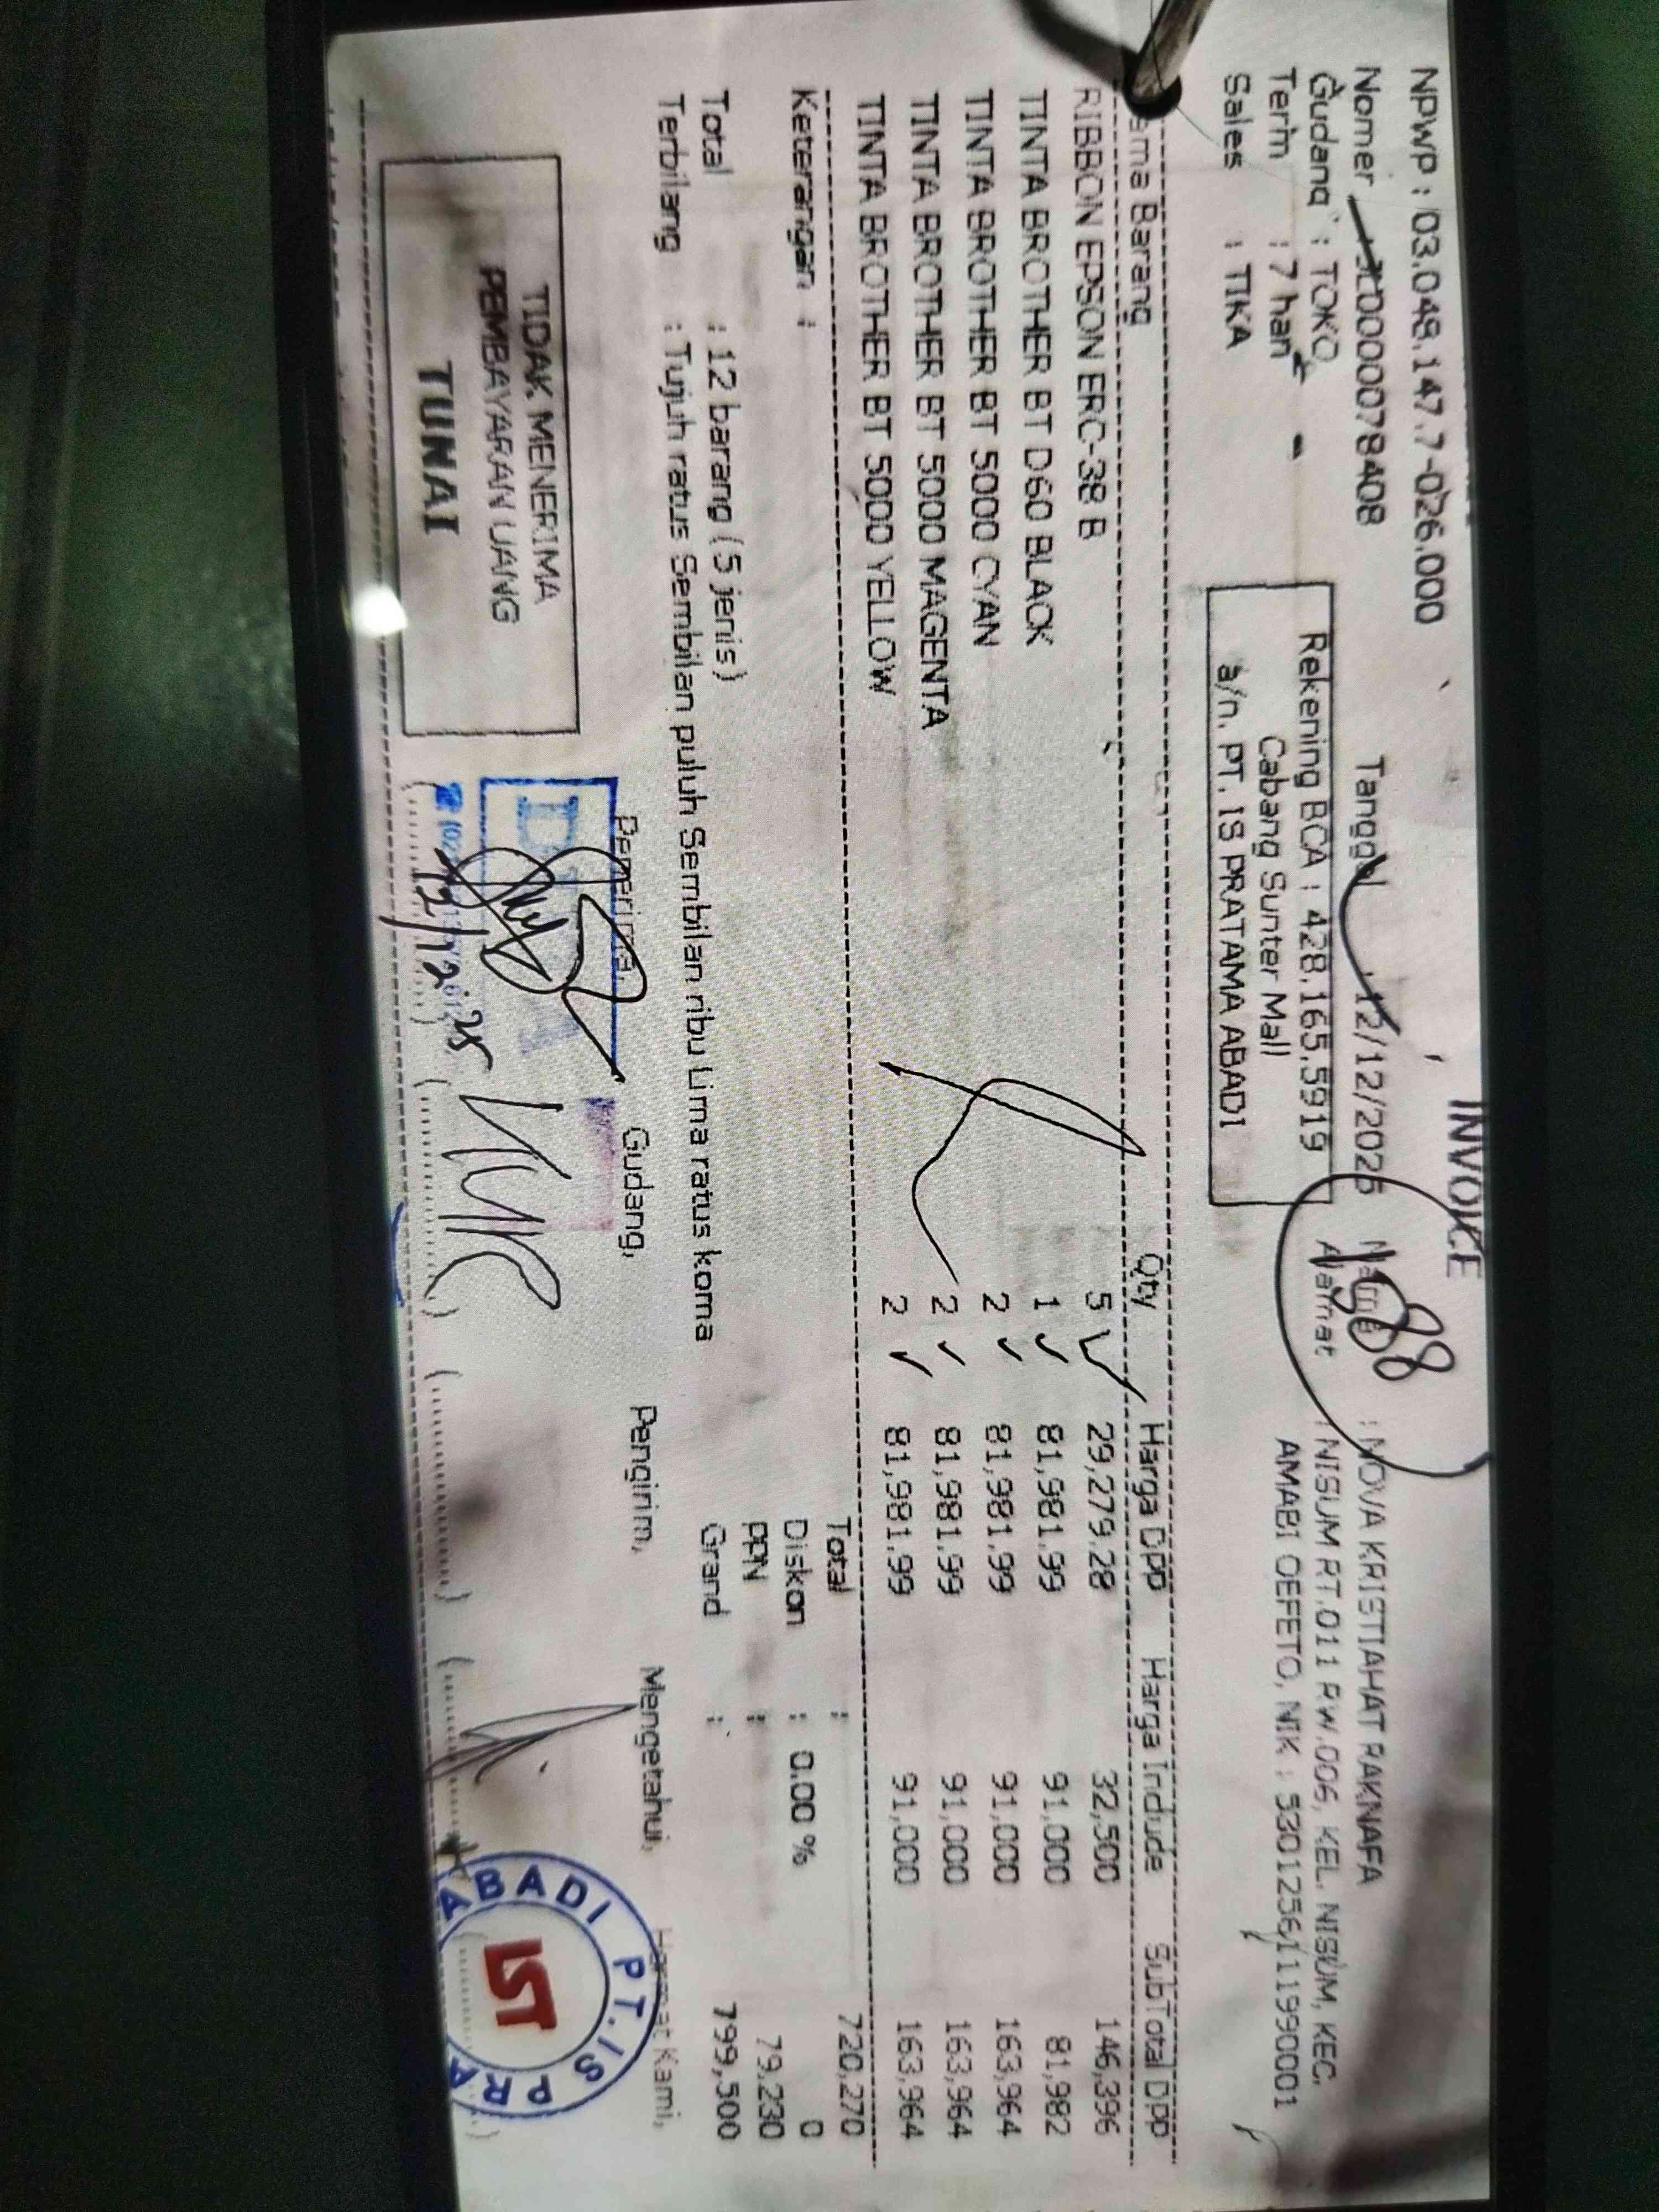 INVOICE
NPWP : 03.048.147.7-026.000
Nomer 0000078408
Tanggal : 12/12/2025
Nama : NOVA KRISTIAHAT RAKNAFA
188
Gudang : TOKO
Rekening BCA : 428.165.5919
Alamat : NISUM RT.011 RW.006, KEL. NISUM, KEC.
Term : 7 hari
Cabang Sunter Mall
AMABI OEFETO, NIK : 5301256111990001
Sales : TIKA
a/n. PT. IS PRATAMA ABADI
ama Barang Qty Harga DPP Harga Include SubTotal DPP
RIBBON EPSON ERC-38 B 5 29,279.28 32,500 146,396
TINTA BROTHER BT D60 BLACK 1 81,981.99 91,000 81,982
TINTA BROTHER BT 5000 CYAN 2 81,981.99 91,000 163,964
TINTA BROTHER BT 5000 MAGENTA 2 81,981.99 91,000 163,964
TINTA BROTHER BT 5000 YELLOW 2 81,981.99 91,000 163,964
Keterangan :
Total : 720,270
Diskon : 0.00 % 0
PPN : 79,230
Grand : 799,500
Total : 12 barang (5 jenis)
Terbilang : Tujuh ratus Sembilan puluh Sembilan ribu Lima ratus koma
Penerima, Gudang, Pengirim, Mengetahui, Hormat Kami,
TIDAK MENERIMA
PEMBAYARAN UANG
TUNAI
12/12.25
ABADI PT.IS PRA
IST